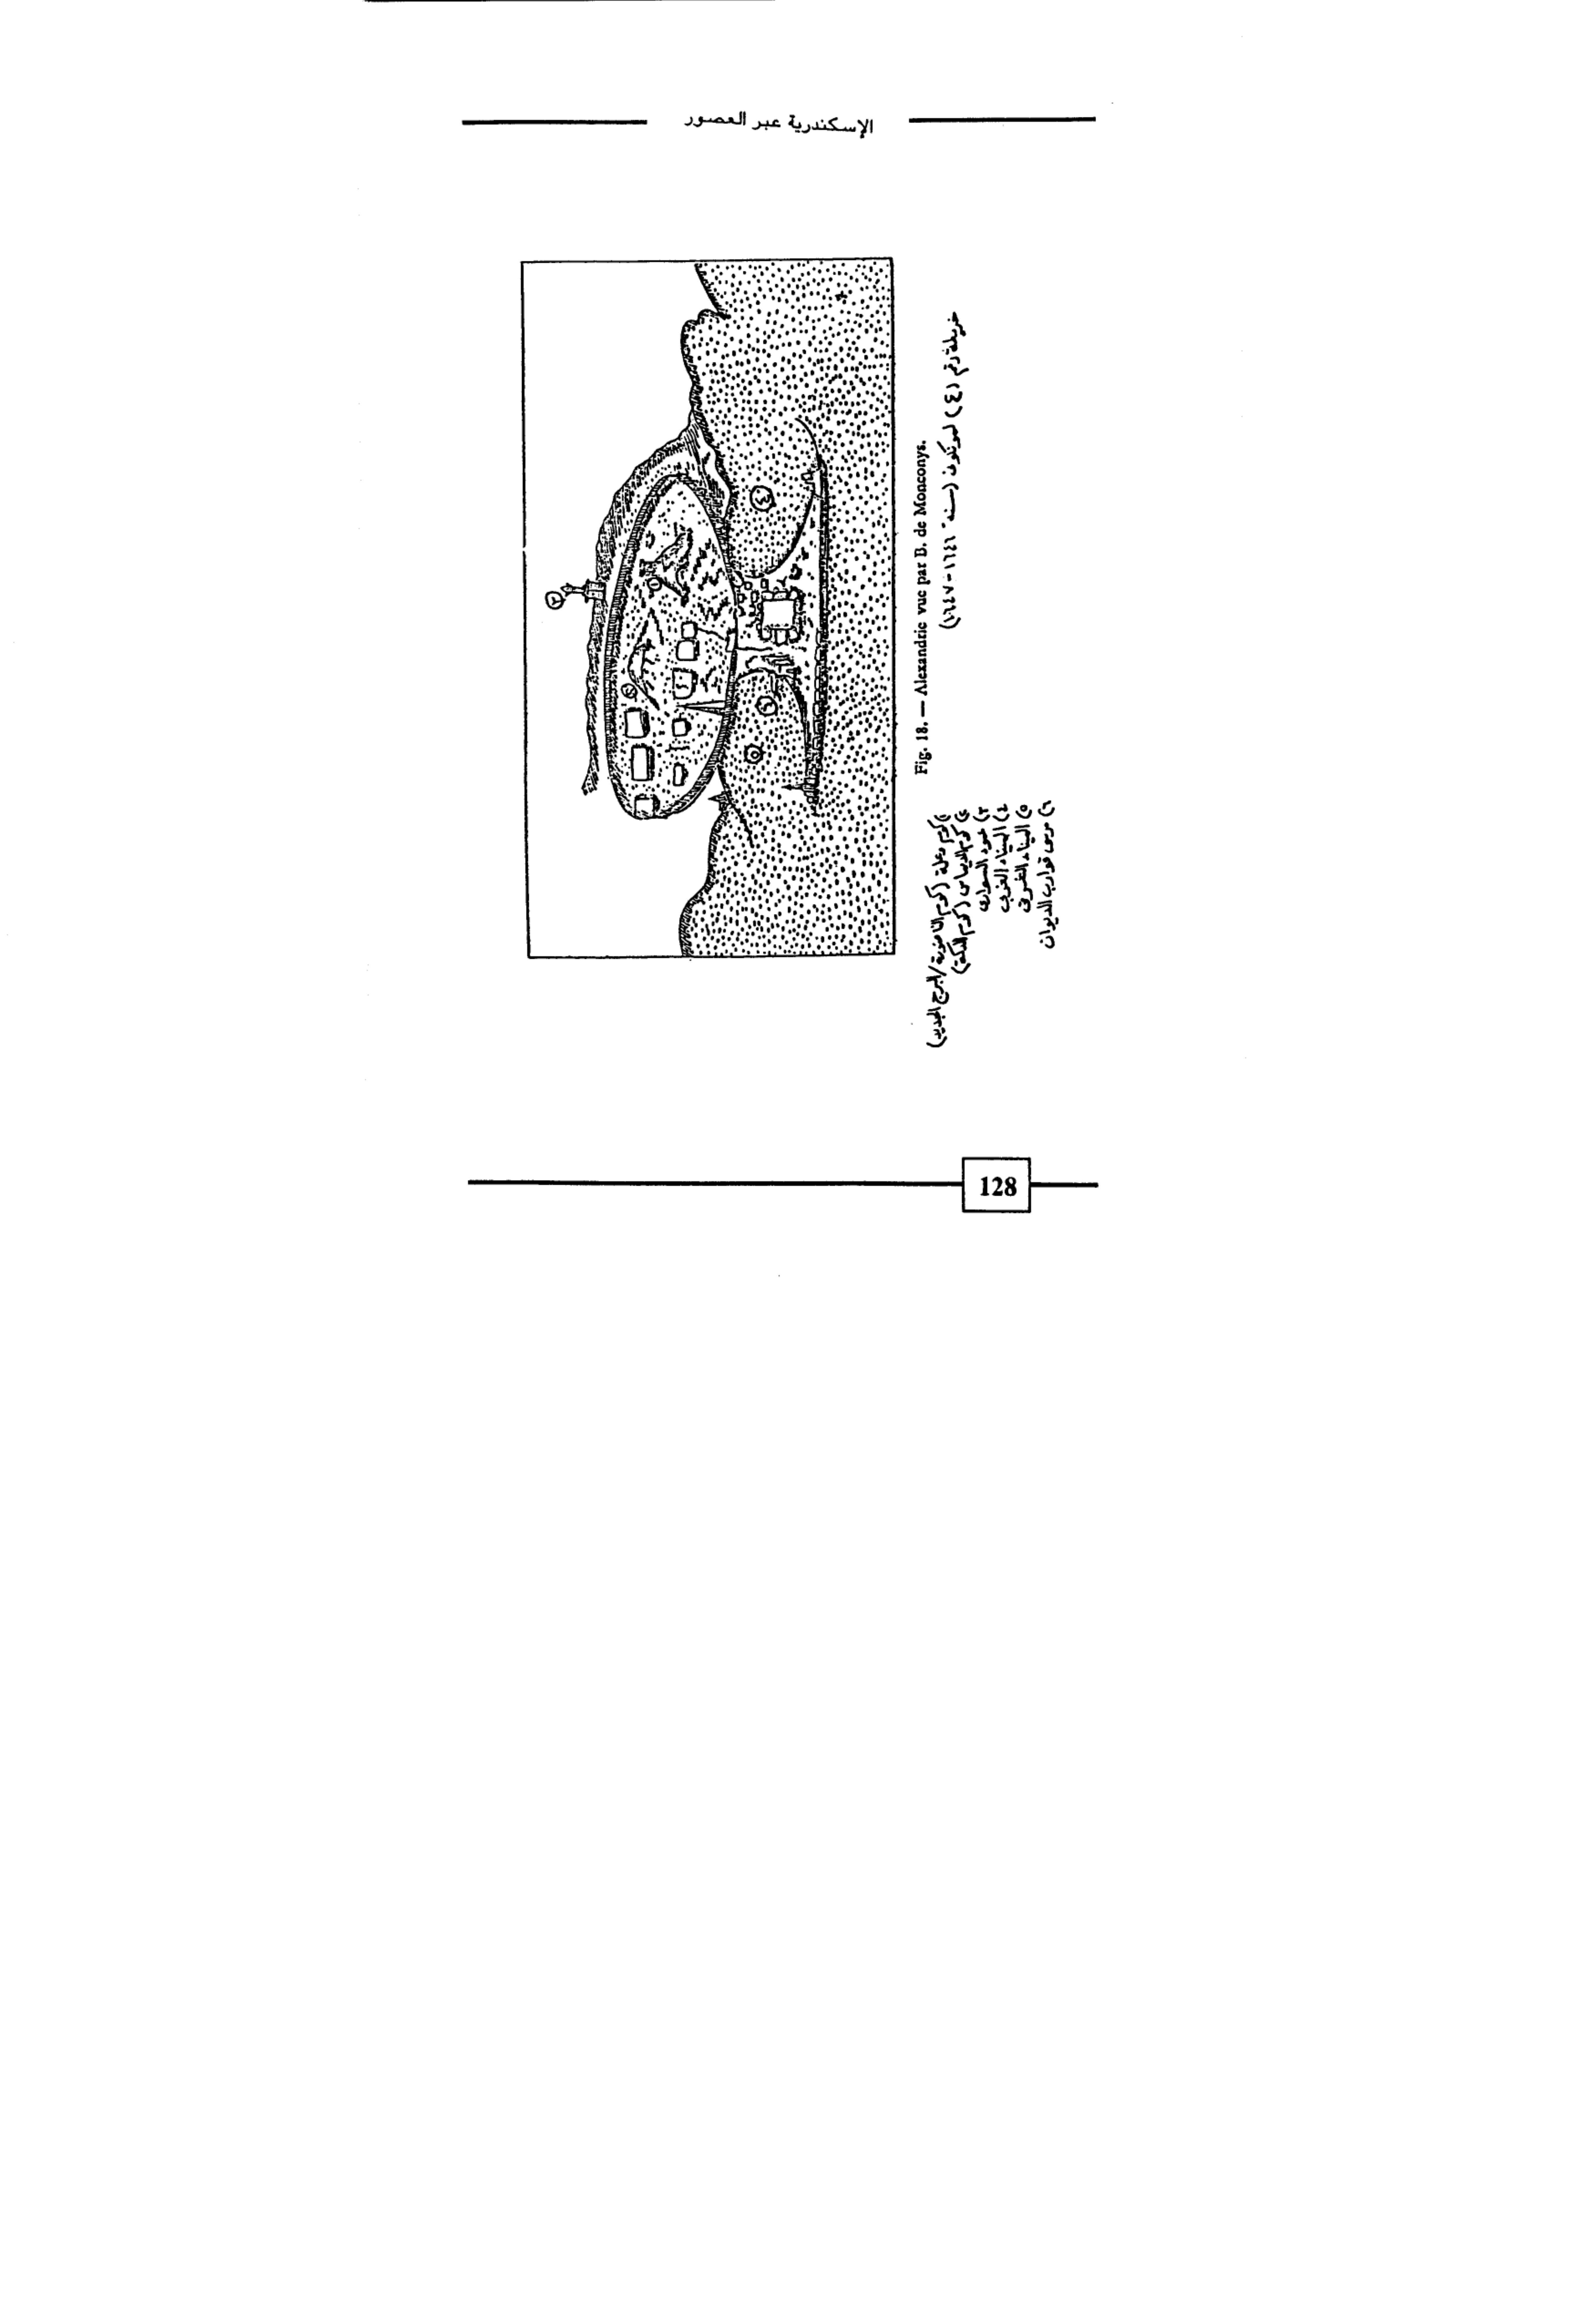 الإسكندرية عبر العصور
Fig. 18. — Alexandrie vue par B. de Monconys.
خريطة رقم (٤) لمونكون (سنة ١٦٤٦-١٦٤٧)
١) كوم وعلة (كوم الناضورة/البرج الجديد)
٢) كوم الديماس (كوم الدكة)
٣) عمود السوارى
٤) الميناء الغربى
٥) الميناء الشرقى
٦) مرسى قوارب الديوان
128